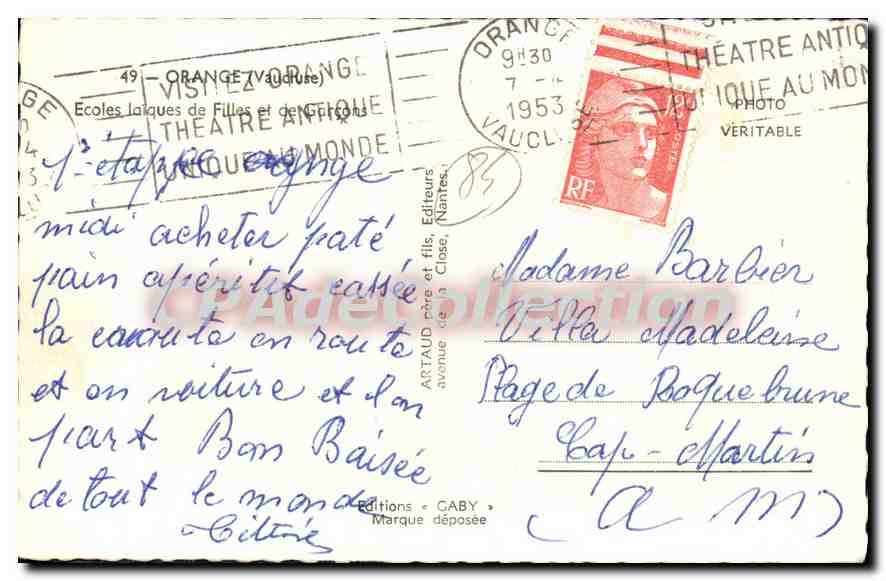 49 — ORANGE (Vaucluse)
Ecoles laïques de Filles et de Garçons
VISITEZ ORANGE
THÉATRE ANTIQUE
UNIQUE AU MONDE
ORANGE
9H30
7
1953
VAUCLUSE
THÉATRE ANTIQ
UNIQUE AU MON
POSTES
RF
PHOTO
VERITABLE
85
orange
midi acheter paté
pain apéritif cassée
la croute en route
et en voiture et l'on
part Bon Baisée
de tout le monde
ARTAUD père et fils, Editeurs
avenue de la Close, Nantes.
Editions « GABY »
Marque déposée
Madame Barbier
Villa Madeleine
Plage de Roquebrune
Cap-Martin
(A M)
CPAdeCollection